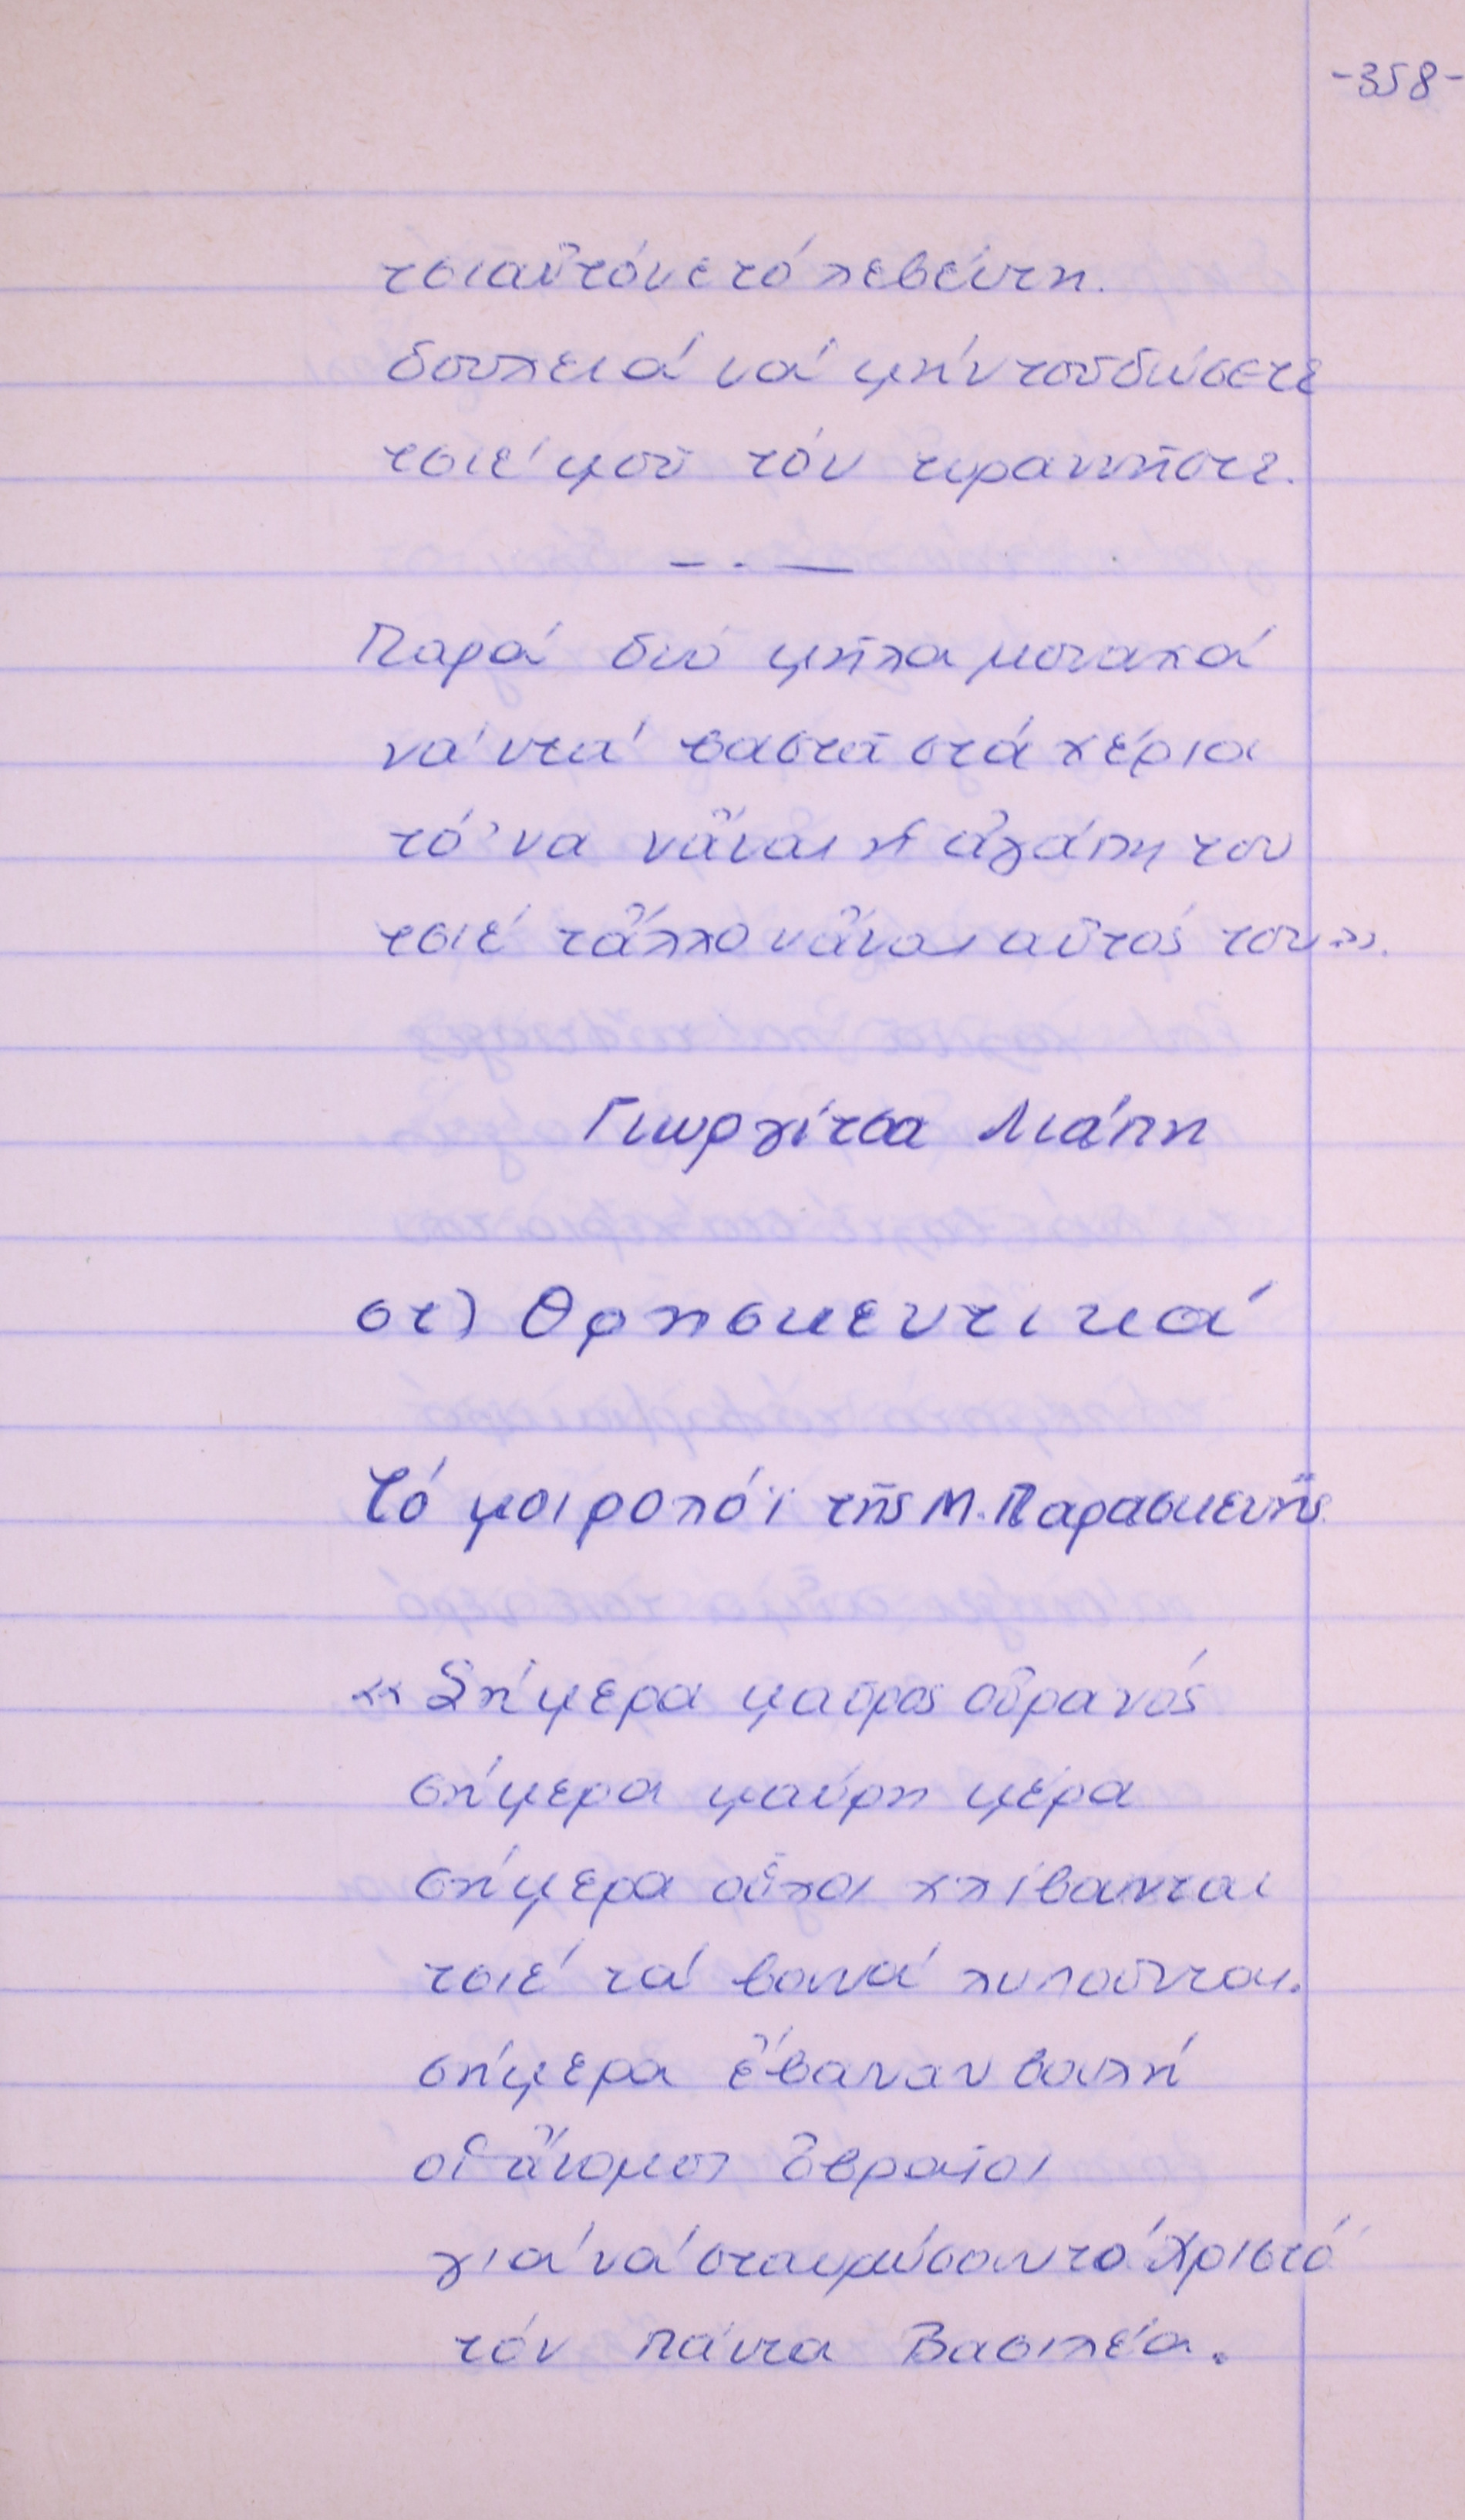 -358-
τσι αὐτόνε τό λεβέντη.
δουλειά νά μήν τοῦ δώσετε
τσιέ μοῦ τόν τυραννῆστε.
— . —
Παρά δυό μῆλα μοναχά
νά ντά βαστᾶ στά χέρια
τό 'να νἄναι ἡ ἀγάπη του
τσιέ τἄλλο νἄναι αὐτός του».
Γιωργίτσα Λιάπη
στ) Θρησκευτικά
Τό μοιρολόϊ τῆς Μ. Παρασκευῆς
«Σήμερα μαῦρος οὐρανός
σήμερα μαύρη μέρα
σήμερα οὗλοι χλίβανται
τσιέ τά βουνά λυποῦνται.
σήμερα ἔβαναν βουλή
οἱ ἄνομοι Ὀβραῖοι
γιά νά σταυρώσουν τό Χριστό
τόν πάντα Βασιλέα.